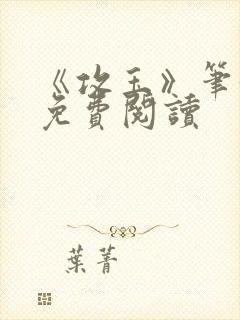 《攻玉》筆
免費閱讀
葉菁